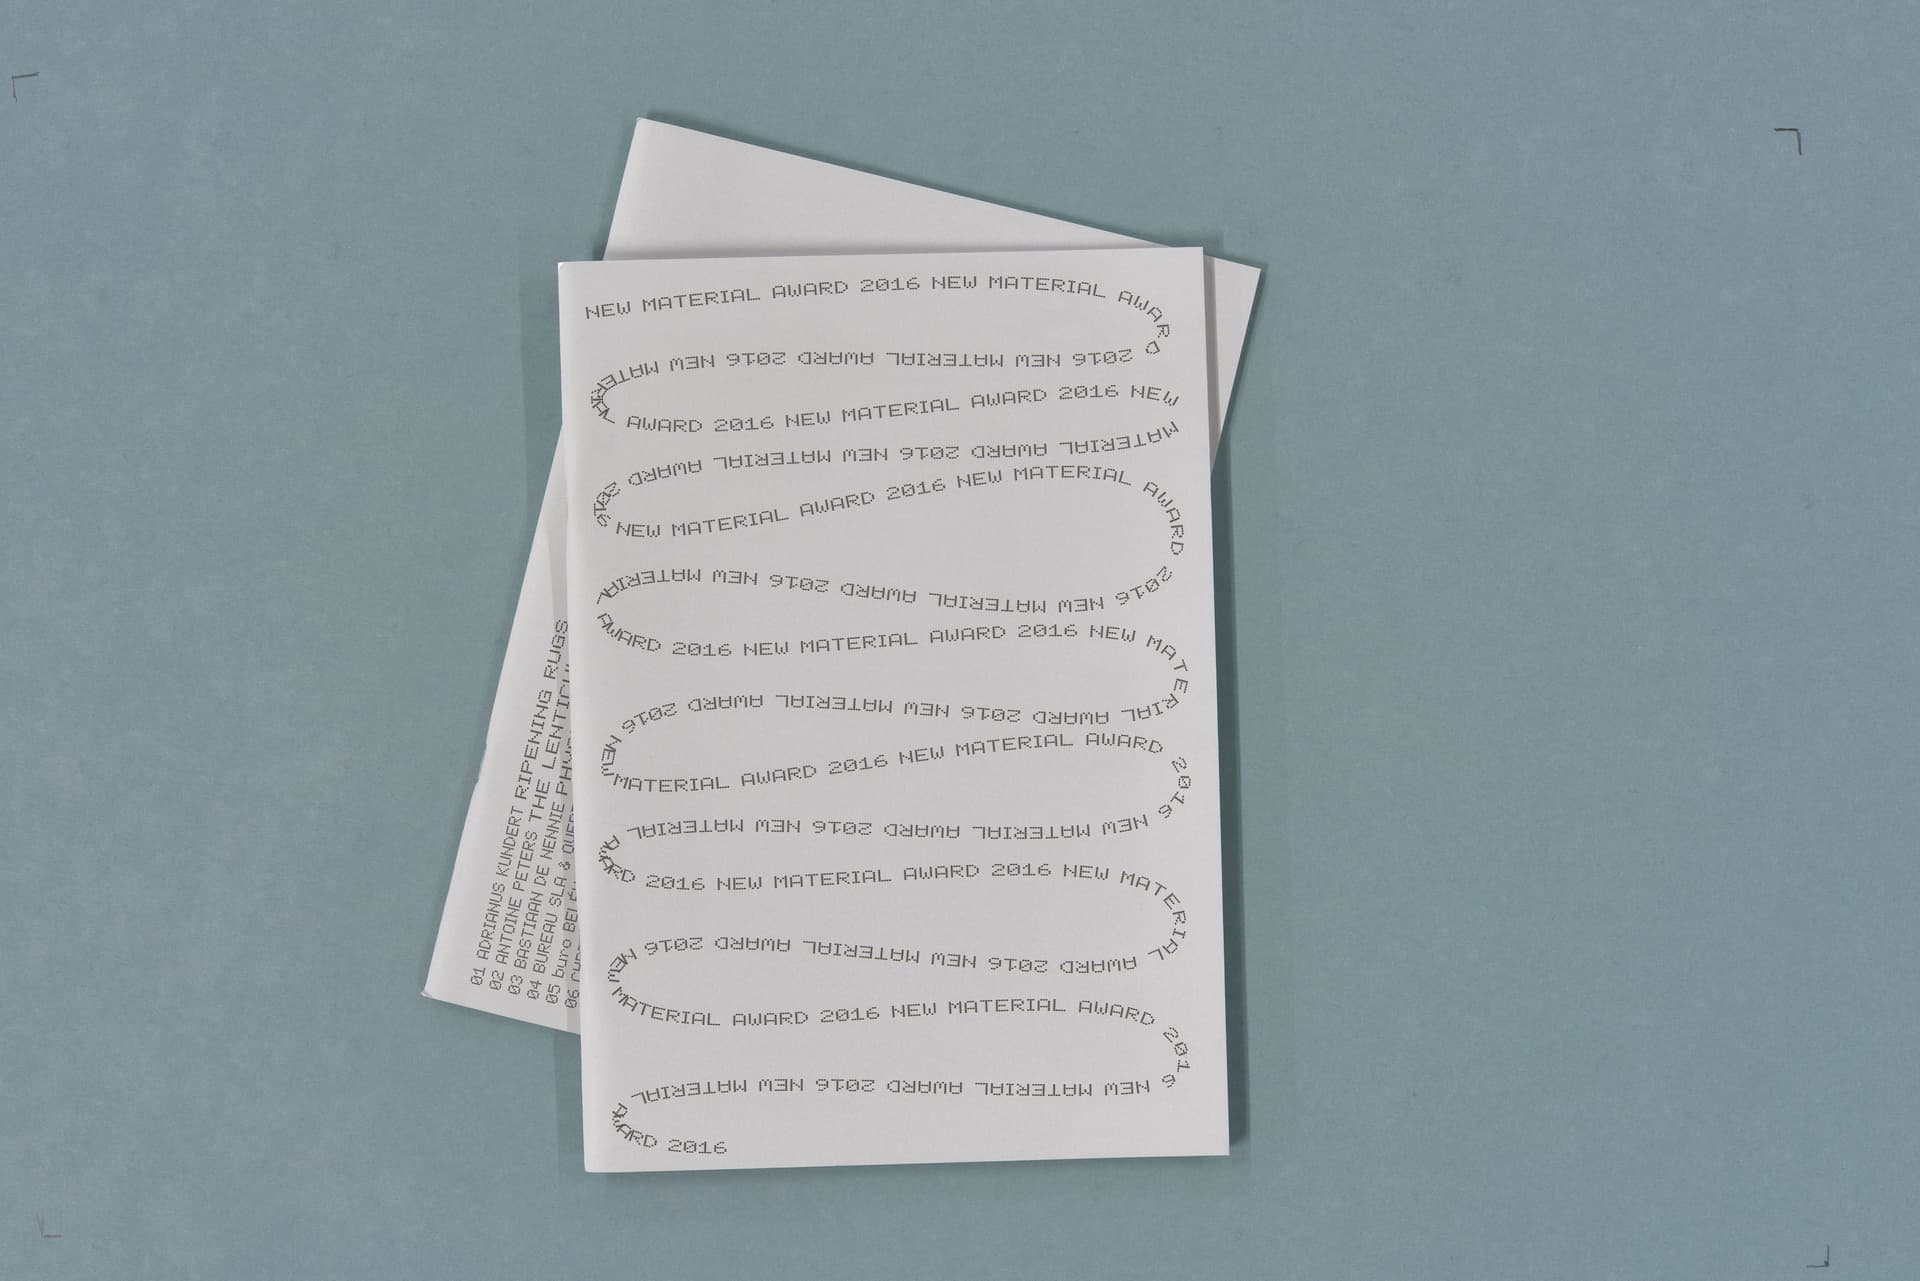 NEW MATERIAL AWARD 2016 NEW MATERIAL AWARD
2016 NEW MATERIAL AWARD 2016 NEW MATERIAL
AWARD 2016 NEW MATERIAL AWARD 2016 NEW
MATERIAL AWARD 2016 NEW MATERIAL AWARD 2016
NEW MATERIAL AWARD 2016 NEW MATERIAL AWARD
2016 NEW MATERIAL AWARD 2016 NEW MATERIAL
AWARD 2016 NEW MATERIAL AWARD 2016 NEW MATERIAL
AWARD 2016 NEW MATERIAL AWARD 2016 NEW
MATERIAL AWARD 2016 NEW MATERIAL AWARD 2016
NEW MATERIAL AWARD 2016 NEW MATERIAL
AWARD 2016 NEW MATERIAL AWARD 2016 NEW MATERIAL
AWARD 2016 NEW MATERIAL AWARD 2016 NEW
MATERIAL AWARD 2016 NEW MATERIAL AWARD 2016
NEW MATERIAL AWARD 2016 NEW MATERIAL
AWARD 2016
01 ADRIANUS KUNDERT RIPENING RUGS
02 ANTOINE PETERS THE
03 BASTIAAN DE NENNIE
04 BUREAU SLA &
05 buro
06